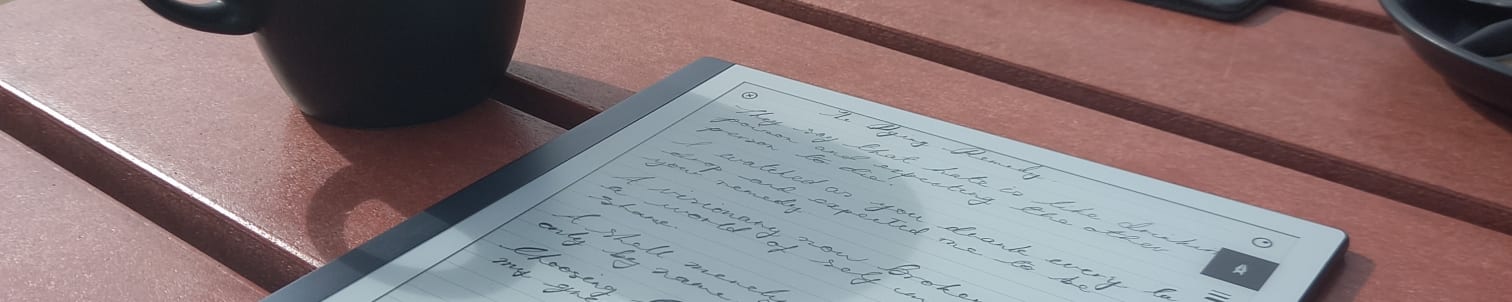 The Dying Remedy
They say that hate is like drinking
poison and expecting the other
person to die.
I watched as you drank every la
drop and expected me to be
your remedy.
A visionary now broken
a world of self in
shame.
I shall merely
only by name
Choosing
my